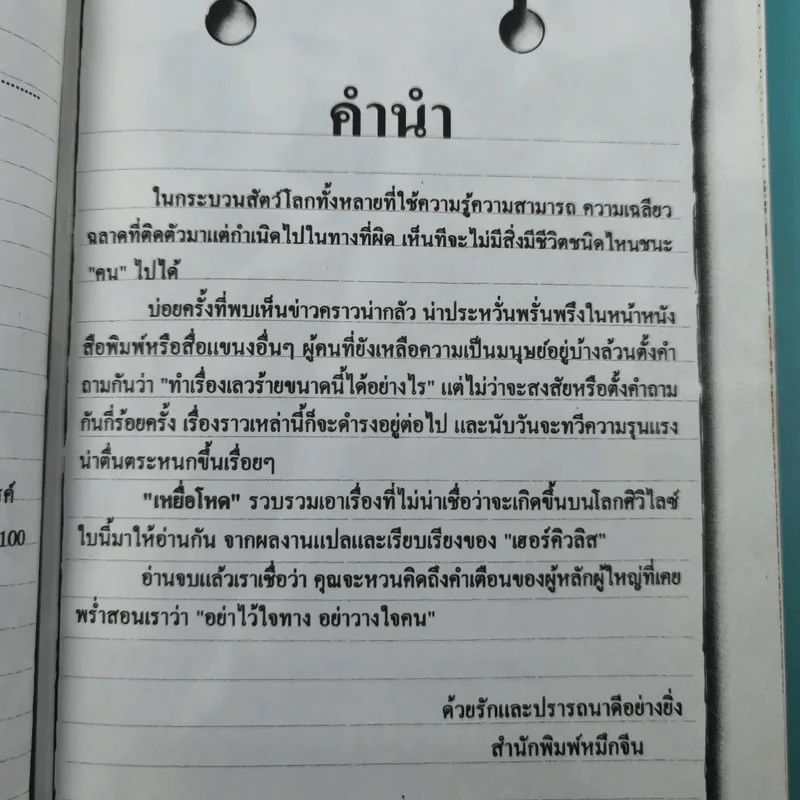 คำนำ
ในกระบวนสัตว์โลกทั้งหลายที่ใช้ความรู้ความสามารถ ความเฉลียว
ฉลาดที่ติดตัวมาแต่กำเนิดไปในทางที่ผิด เห็นทีจะไม่มีสิ่งมีชีวิตชนิดไหนชนะ
"คน" ไปได้
บ่อยครั้งที่พบเห็นข่าวคราวน่ากลัว น่าประหวั่นพรั่นพรึงในหน้าหนัง
สือพิมพ์หรือสื่อแขนงอื่นๆ ผู้คนที่ยังเหลือความเป็นมนุษย์อยู่บ้างล้วนตั้งคำ
ถามกันว่า "ทำเรื่องเลวร้ายขนาดนี้ได้อย่างไร" แต่ไม่ว่าจะสงสัยหรือตั้งคำถาม
กันกี่ร้อยครั้ง เรื่องราวเหล่านี้ก็จะดำรงอยู่ต่อไป และนับวันจะทวีความรุนแรง
น่าตื่นตระหนกขึ้นเรื่อยๆ
"เหยื่อโหด" รวบรวมเอาเรื่องที่ไม่น่าเชื่อว่าจะเกิดขึ้นบนโลกศิวิไลซ์
ใบนี้มาให้อ่านกัน จากผลงานแปลและเรียบเรียงของ "เฮอร์คิวลิส"
อ่านจบแล้วเราเชื่อว่า คุณจะหวนคิดถึงคำเตือนของผู้หลักผู้ใหญ่ที่เคย
พร่ำสอนเราว่า "อย่าไว้ใจทาง อย่าวางใจคน"
ด้วยรักและปรารถนาดีอย่างยิ่ง
สำนักพิมพ์หมึกจีน
100